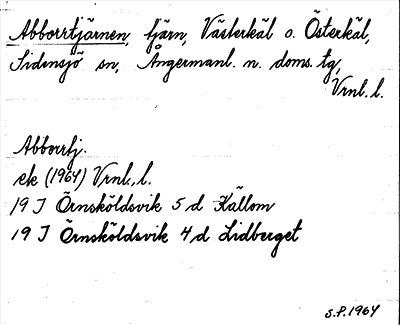 Abborrtjärnen, tjärn, Västerkäl o. Österkäl,
Sidensjö sn, Ångermanl. n. doms. tg,
Vrnl. l.
Abborrtj.
ek (1964) Vrnl. l.
19 J Örnsköldsvik 5 d Källom
19 J Örnsköldsvik 4 d Lidberget
S.P. 1964